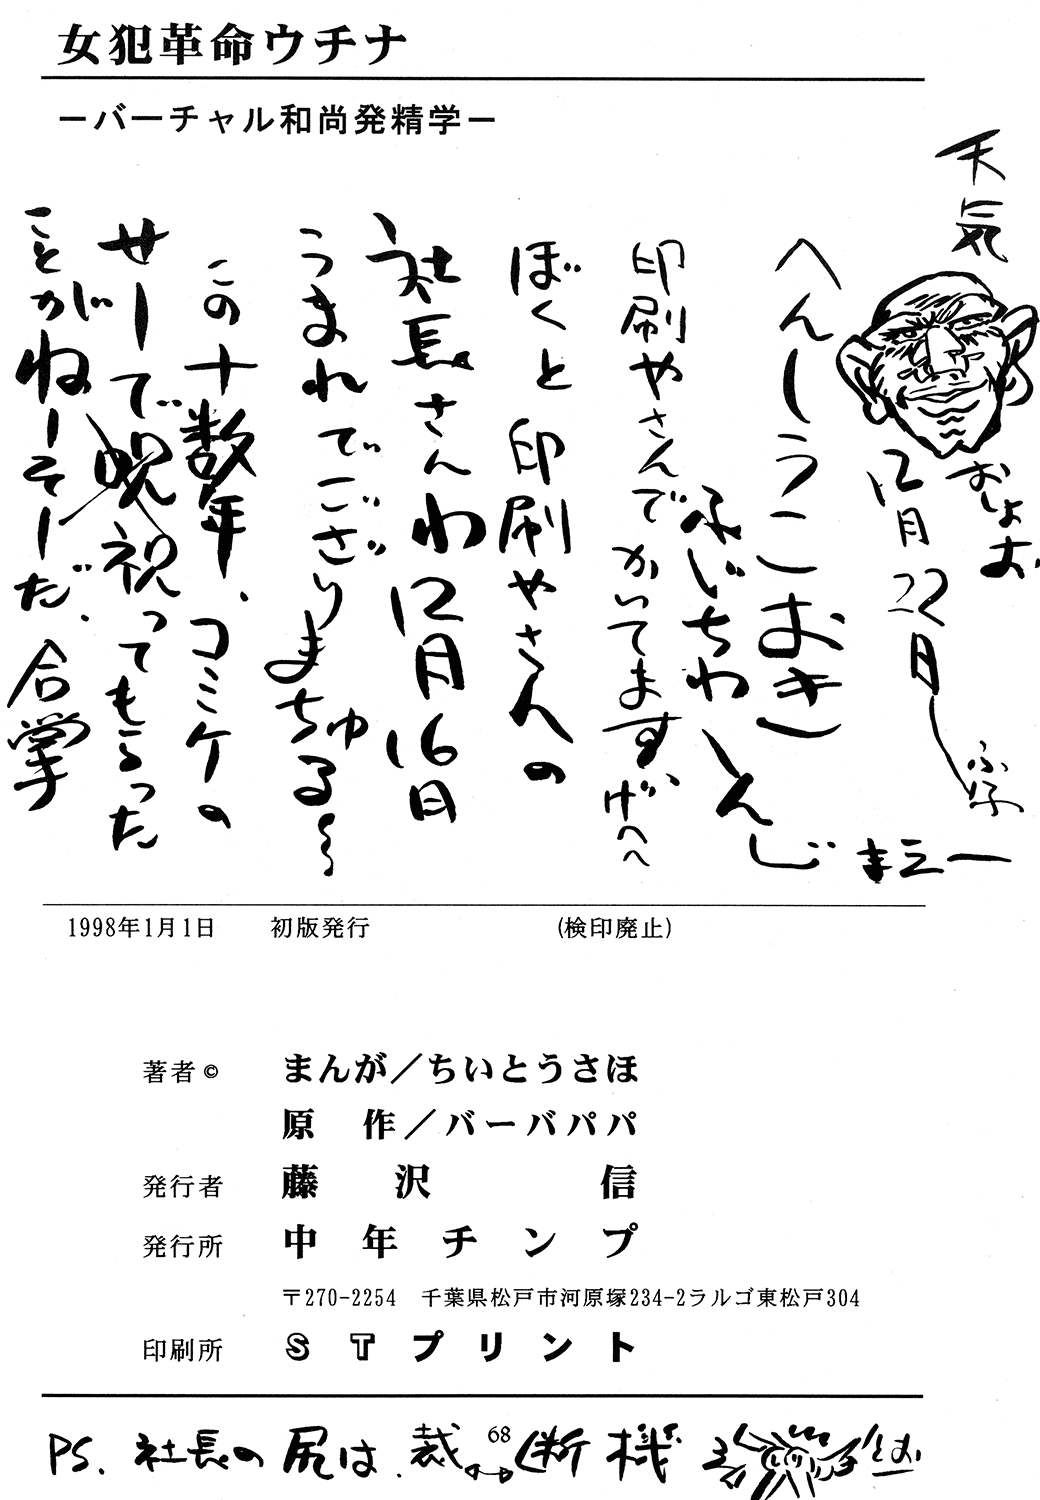 女犯革命ウチナ
ーバーチャル和尚発精学ー
天気
おじょお
12月22日
まえー
へんしうこおき
ふじちわしんじ
印刷やさんで
かいてますげへへ
ぼくと印刷やさんの
社長さんわ12月16日
うまれでござりまちゅる〜
この十数年、コミケの
せーで呪祝ってもらった
ことがねーそーだ、合掌
1998年1月1日 初版発行 (検印廃止)
著者© まんが/ちいとうさほ
原作/バーバパパ
発行者 藤沢信
発行所 中年チンプ
〒270-2254 千葉県松戸市河原塚234-2ラルゴ東松戸304
印刷所 STプリント
PS. 社長の尻は裁断機
68